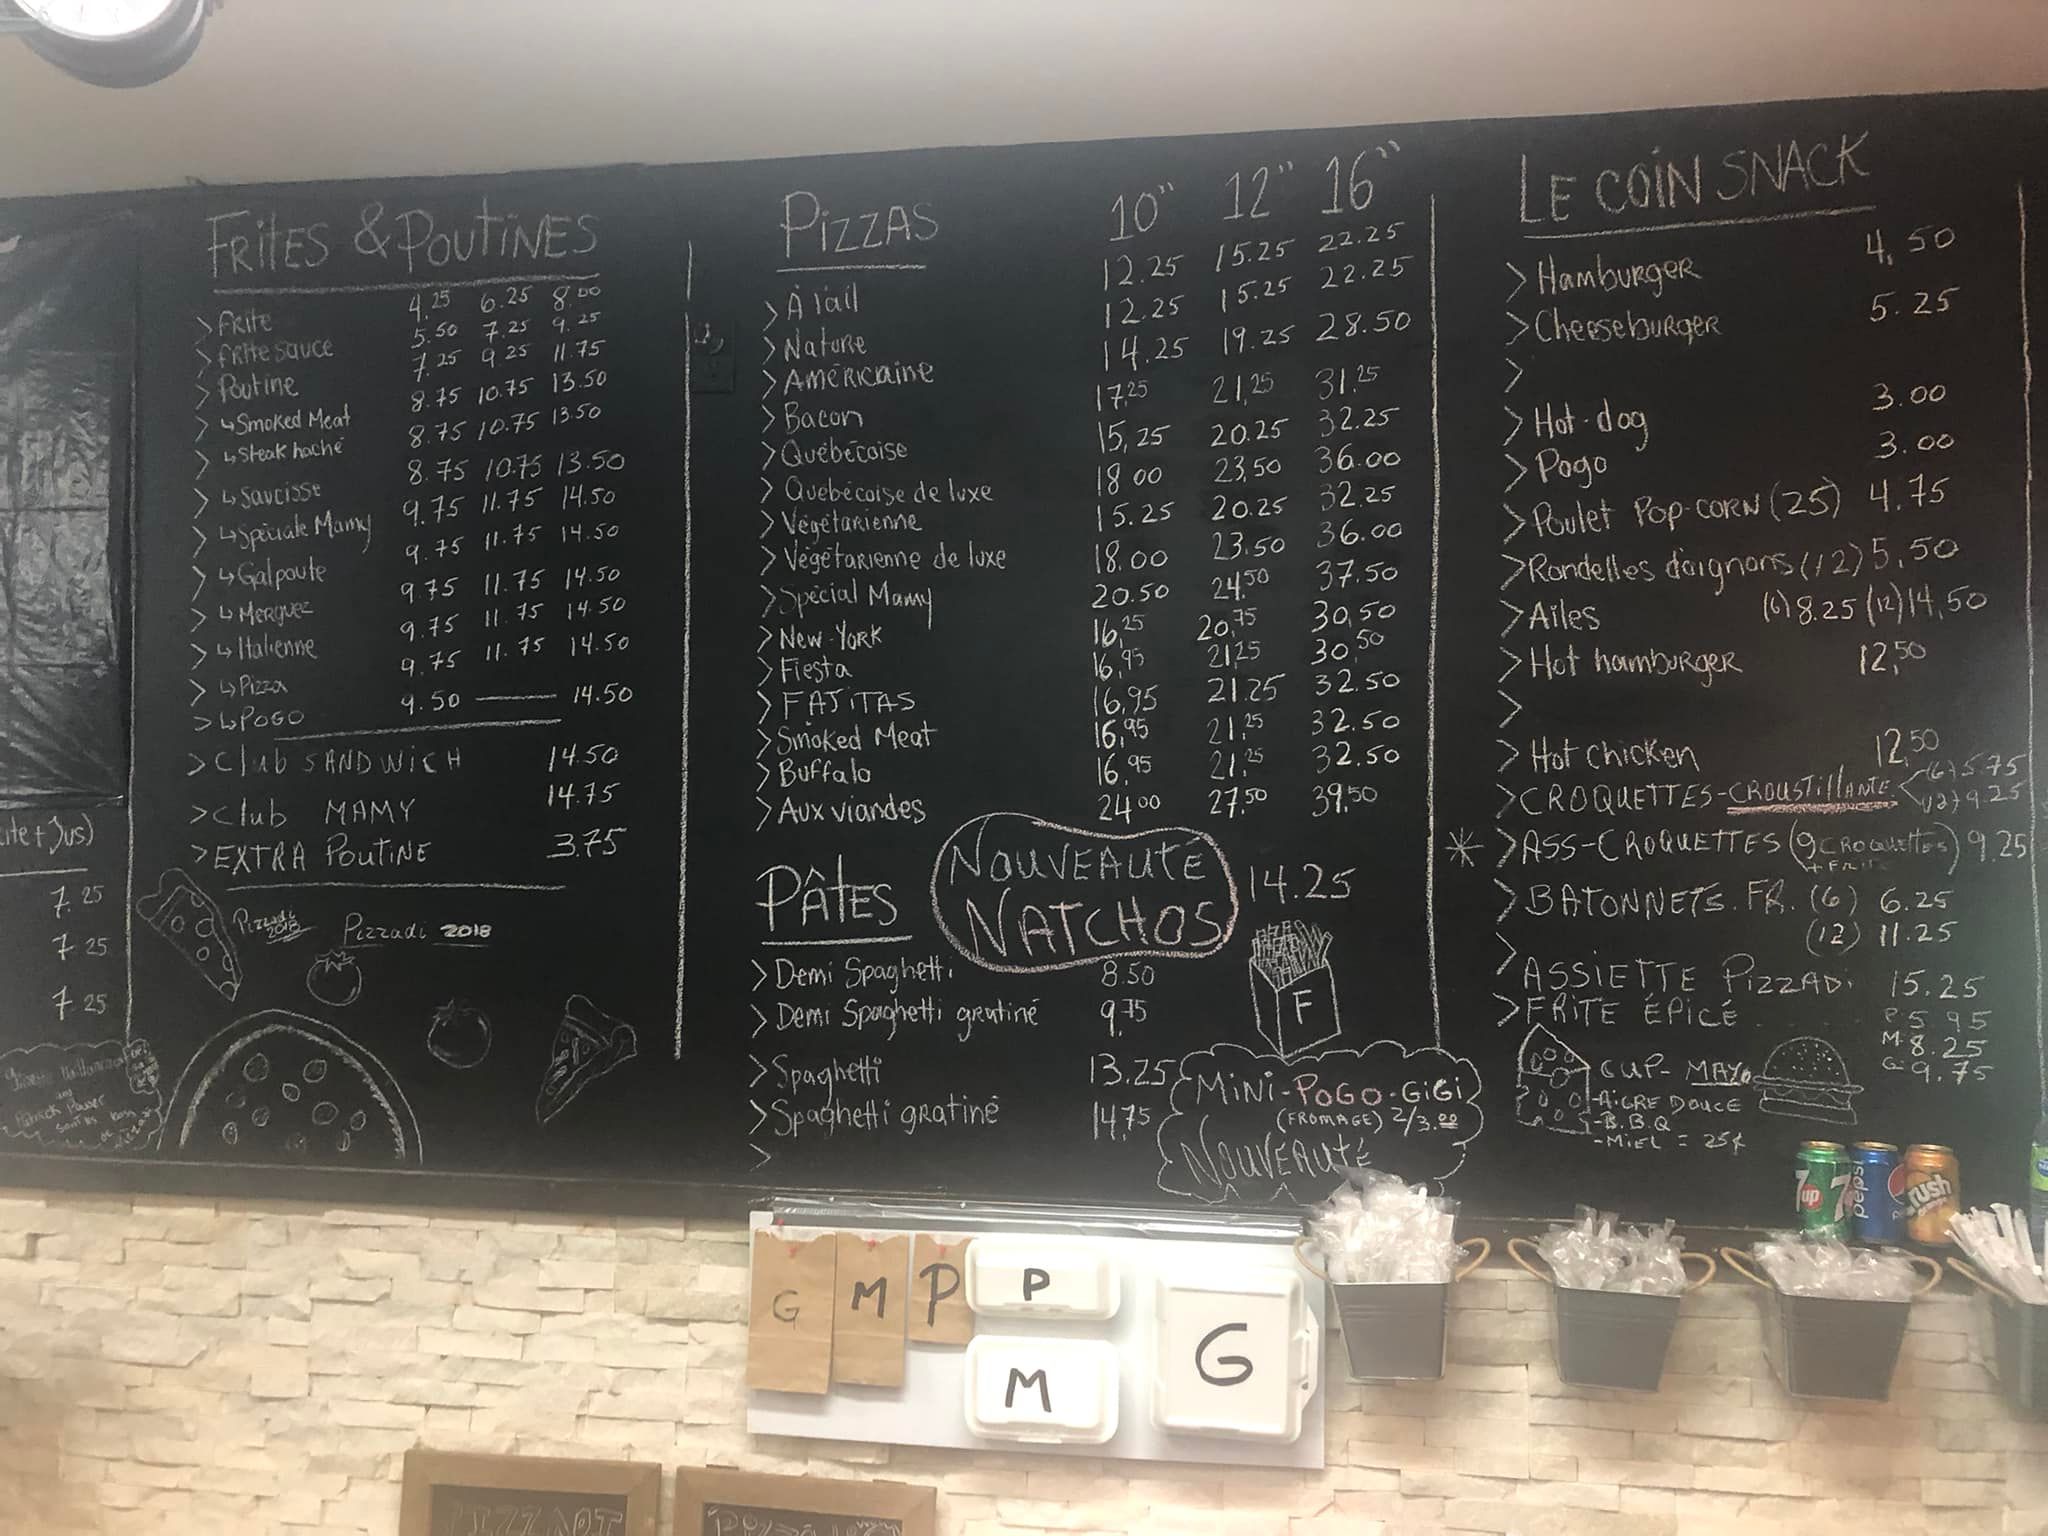 FRITES & POUTINES
> Frite 4.25 6.25 8.00
> Frite sauce 5.50 7.25 9.25
> Poutine 7.25 9.25 11.75
> ↳ Smoked Meat 8.75 10.75 13.50
> ↳ Steak haché 8.75 10.75 13.50
> ↳ Saucisse 8.75 10.75 13.50
> ↳ Spéciale Mamy 9.75 11.75 14.50
> ↳ Galpoute 9.75 11.75 14.50
> ↳ Merguez 9.75 11.75 14.50
> ↳ Italienne 9.75 11.75 14.50
> ↳ Pizza 9.75 11.75 14.50
> ↳ POGO 9.50 — 14.50
> Club SANDWICH 14.50
> Club MAMY 14.75
> EXTRA POUTINE 3.75
Pizzadi 2018
Pizzadi 2018
Jus)
7.25
7.25
7.25
PIZZAS 10" 12" 16"
> À l'ail 12.25 15.25 22.25
> Nature 12.25 15.25 22.25
> Américaine 14.25 19.25 28.50
> Bacon 17,25 21,25 31,25
> Québécoise 15,25 20.25 32.25
> Quebécoise de luxe 18 00 23,50 36.00
> Végétarienne 15.25 20.25 32.25
> Végétarienne de luxe 18.00 23.50 36.00
> Spécial Mamy 20.50 24,50 37.50
> New-York 16,25 20,75 30,50
> Fiesta 16,95 21,25 30,50
> FAJITAS 16,95 21.25 32.50
> Smoked Meat 16,95 21,25 32.50
> Buffalo 16,95 21,25 32.50
> Aux viandes 24 00 27,50 39,50
NOUVEAUTÉ
NATCHOS 14.25
PÂTES
> Demi Spaghetti 8.50
> Demi Spaghetti gratiné 9,75
> Spaghetti 13.25
> Spaghetti gratiné 14,75
>
F
MINI-POGO-GiGi
(FROMAGE) 2/3.00
NOUVEAUTÉ
LE COIN SNACK
> Hamburger 4,50
> Cheeseburger 5.25
>
> Hot-dog 3.00
> Pogo 3.00
> Poulet Pop-corn (25) 4.75
> Rondelles d'oignons (12) 5,50
> Ailes (6) 8.25 (12) 14,50
> Hot hamburger 12,50
>
> Hot chicken 12,50
> CROQUETTES-CROUSTILLANTE (6) 5.75
(12) 9.25
* > ASS-CROQUETTES (9 CROQUETTES + FRITE) 9.25
> BATONNETS. FR. (6) 6.25
(12) 11.25
> ASSIETTE PIZZADi 15.25
> FRITE ÉPICÉ P. 5.95
M. 8.25
G. 9.75
CUP- MAYO
-AIGRE DOUCE
-B.B.Q
-MIEL = 25¢
7up
pepsi
Crush
G M P P
M
G